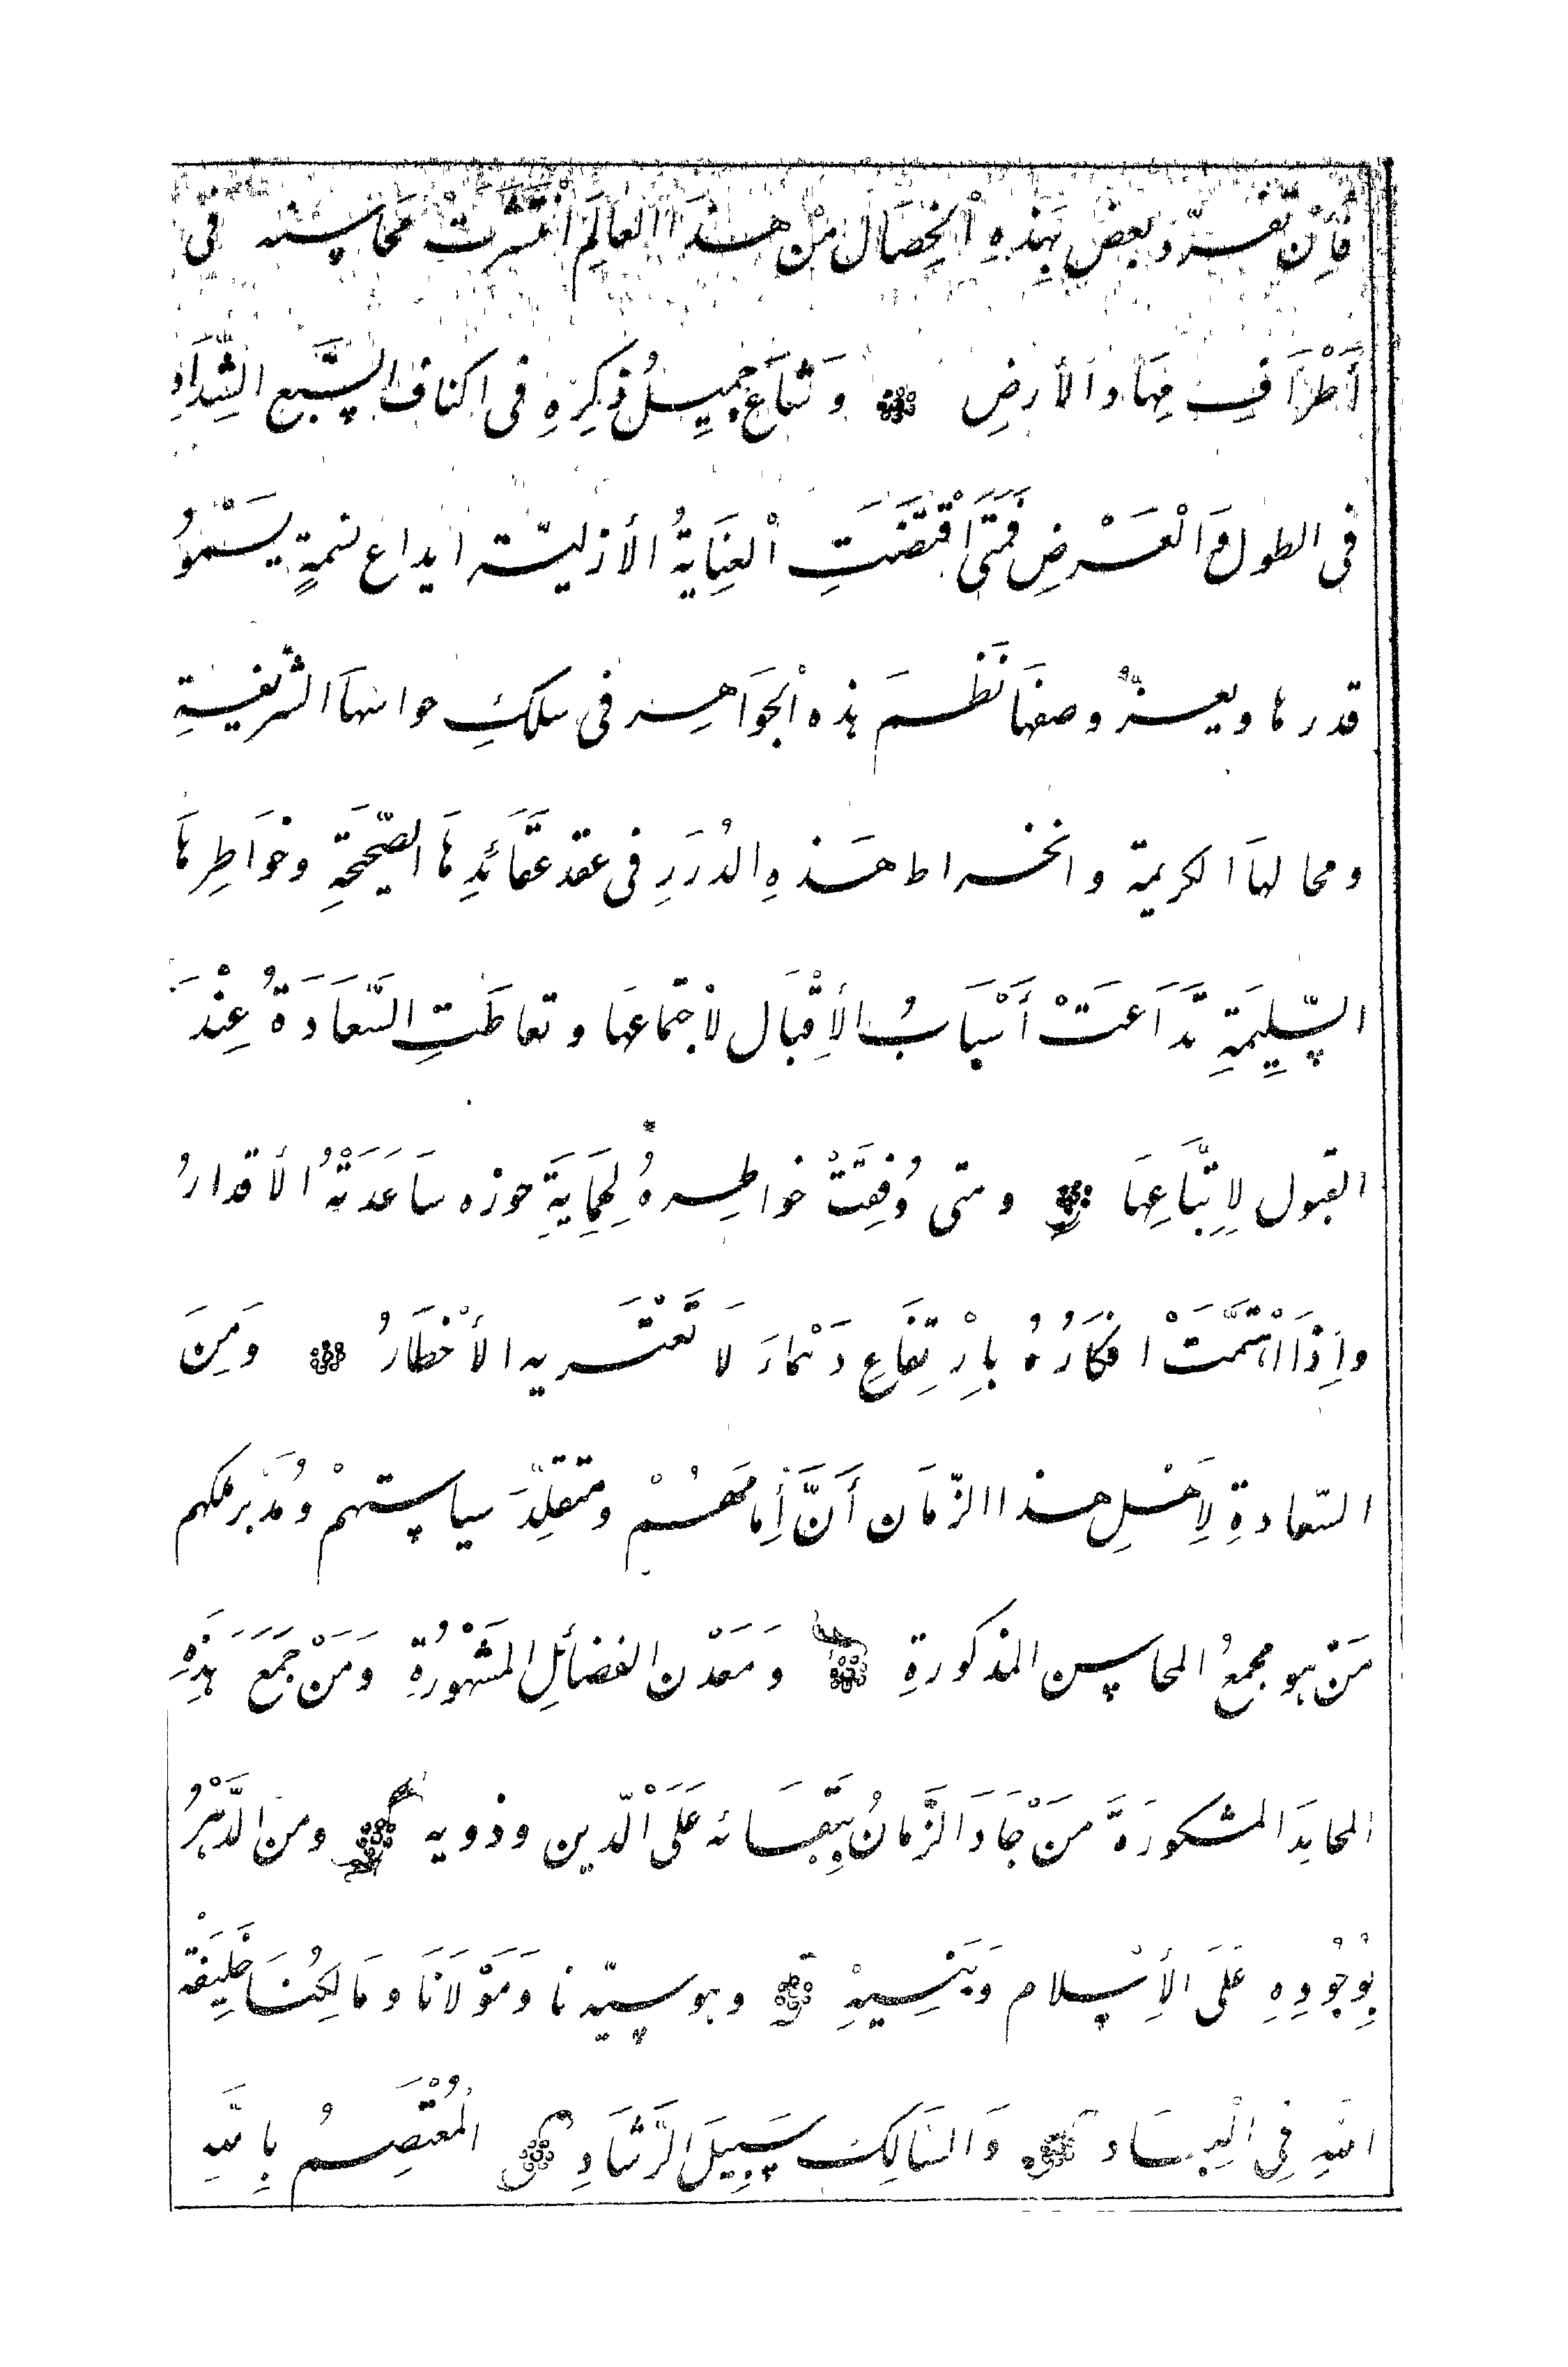 فَاِنْ تفرّد بعض بَهذِهِ الْخِصَال مِنْ هذَا العَالِم اَنْتَشَرَتْ مَحَاسِنه فى
أَطْرَافِ مِهَاد الأرضِ وَشَاعَ جَمِيلُ ذِكِرِهِ فى اكناف السَّبع الشِّدَادِ
فى الطول وَالْعَرْضِ فَمَتَى اَقْتَضَتِ الْعِنَايَةُ الأزليّة ايداع نسمةٍ يَسْمُوُ
قدرها ويعزّ وصفهَا نَظْمَ هذه الْجَوَاهِر فى سلكِ حواسّها الشريفةِ
ومحالهَا الكريمة وانخراط هَذهِ الدُرَرِ فى عقد عَقَائدِهَا الصَّحِيحَةِ وخوَاطِرهَا
السَّلِيمَةِ تَدَاعَتْ أَسْبَابُ الأِقْبَال لأجتماعهَا وتعاطَتِ السَّعَادَةُ عِنْدَ
القبول لِاِتبَّاعِهَا ومتى وُفِقَّتْ خواطِرهُ لِحِمَايَةِ حوزه سَاعَدَتْهُ الأقدارُ
وَاِذَا اهْتَمَّتْ افكَارُهُ بِارْتِفَاعِ دَمَارَ لَا تَعْتَريه الأخْطَارُ وَمِنَ
السّعادةِ لِأَهلِ هذا الزّمَان أَنَّ أِمَامَهُمْ ومتقلِّدَ سياستهمْ ومُدَبّر ملكهم
مَنْ هو مجمعُ المحاسن المذكورةِ وَمَعَدْن الفضائلِ المَشْهُوْرَةِ وَمَنْ جَمَعَ هَذِهِ
المحامِدَ المشكورَةَ مَنْ جَادَ الزَّمَانُ بِبَقَائه عَلَىَ الْدّين وذويه ومن الدَّهْرُ
بِوُجُودِهِ عَلَىَ الأِسْلام وَبَنِيهْ وهو سيّدنا وَمَوْلَانَا وَمَالِكُنَا خَلِيفَة
اللهِ فِى الْعِبَاد وَالسَالِكَ سَبِيلَ الرَّشَادِ المُعْتَصِمُ بِاللهِ